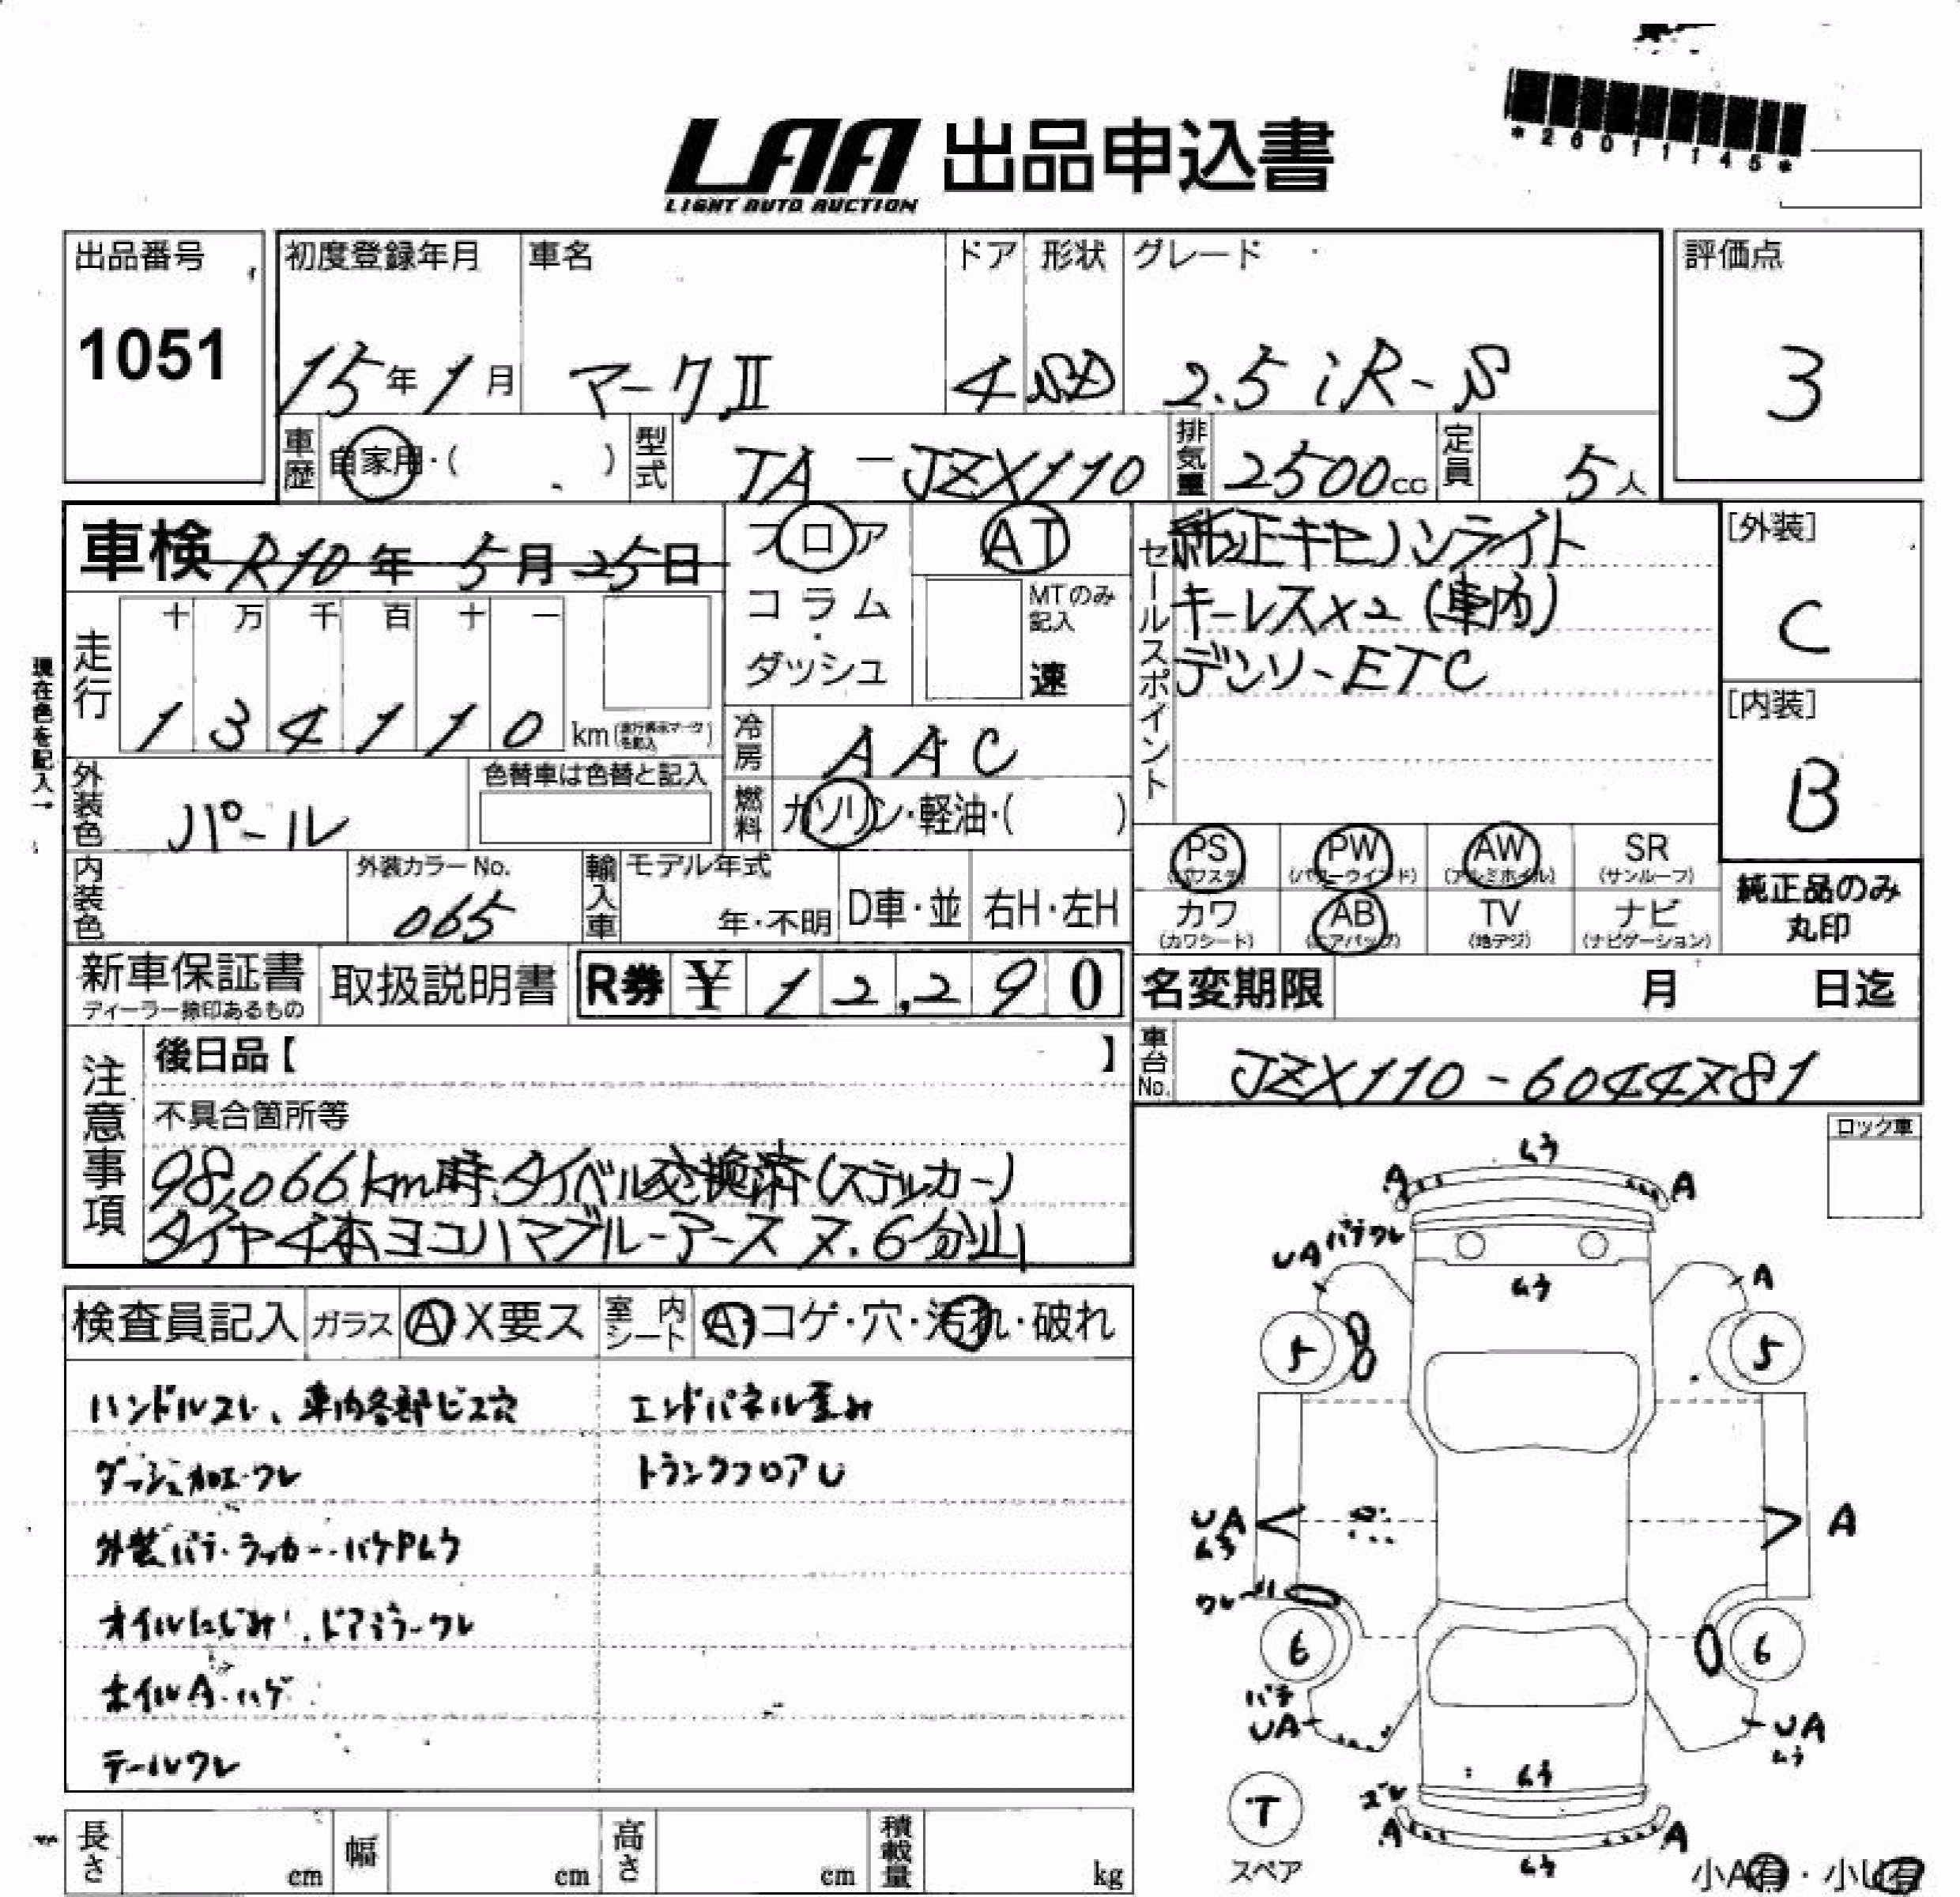 *26011145*
LAA 出品申込書
LIGHT AUTO AUCTION
出品番号
1051
初度登録年月 車名 ドア 形状 グレード
15年1月 マークⅡ 4 SD 2.5 iR-S
評価点
3
車歴 自家用・( ) 型式 TA-JZX110 排気量 2500cc 定員 5人
車検 R10年 5月 25日
フロア AT
コラム・ダッシュ
MTのみ記入
速
セールスポイント
純正キセノンライト
キーレス×2 (車内)
デンソーETC
[外装]
C
[内装]
B
現在色を記入→
走行
十 万 千 百 十 一
1 3 4 1 1 0 km
冷房 AAC
外装色 パール
色替車は色替と記入
燃料 ガソリン・軽油・( )
PS PW AW SR
(パワステ) (パワーウインド) (アルミホイル) (サンルーフ)
カワ AB TV ナビ
(カワシート) (エアバック) (地デジ) (ナビゲーション)
純正品のみ丸印
内装色 外装カラーNo. 065
輸入車 モデル年式 年・不明 D車・並 右H・左H
新車保証書
ディーラー捺印あるもの
取扱説明書
R券 ¥12,290
名変期限 月 日迄
車台No. JZX110-6044781
注意事項
後日品【 】
不具合箇所等
98,066km時タイベル交換済(ステッカー)
タイヤ4本ヨコハマブルーアース 7.6分山
ロック車
検査員記入 ガラス A X要ス 室内シート A コゲ・穴・汚れ・破れ
ハンドルスレ、車内各部ビス穴
エンドパネル歪み
ダッシュ加工・ワレ
トランクフロアU
外装パテ・ラッカー・ハケPムラ
オイルにじみ、ドアミラーワレ
ホイルA・ハゲ
テールワレ
ムラ
A A
UA パテワレ
A
ムラ
5 5
UA
ムラ
A
ワレ
6 6
パテ
UA
UA
ムラ
ムラ
ズレ
A A
ムラ
T
スペア
長さ cm 幅 cm 高さ cm 積載量 kg
小A有・小U有